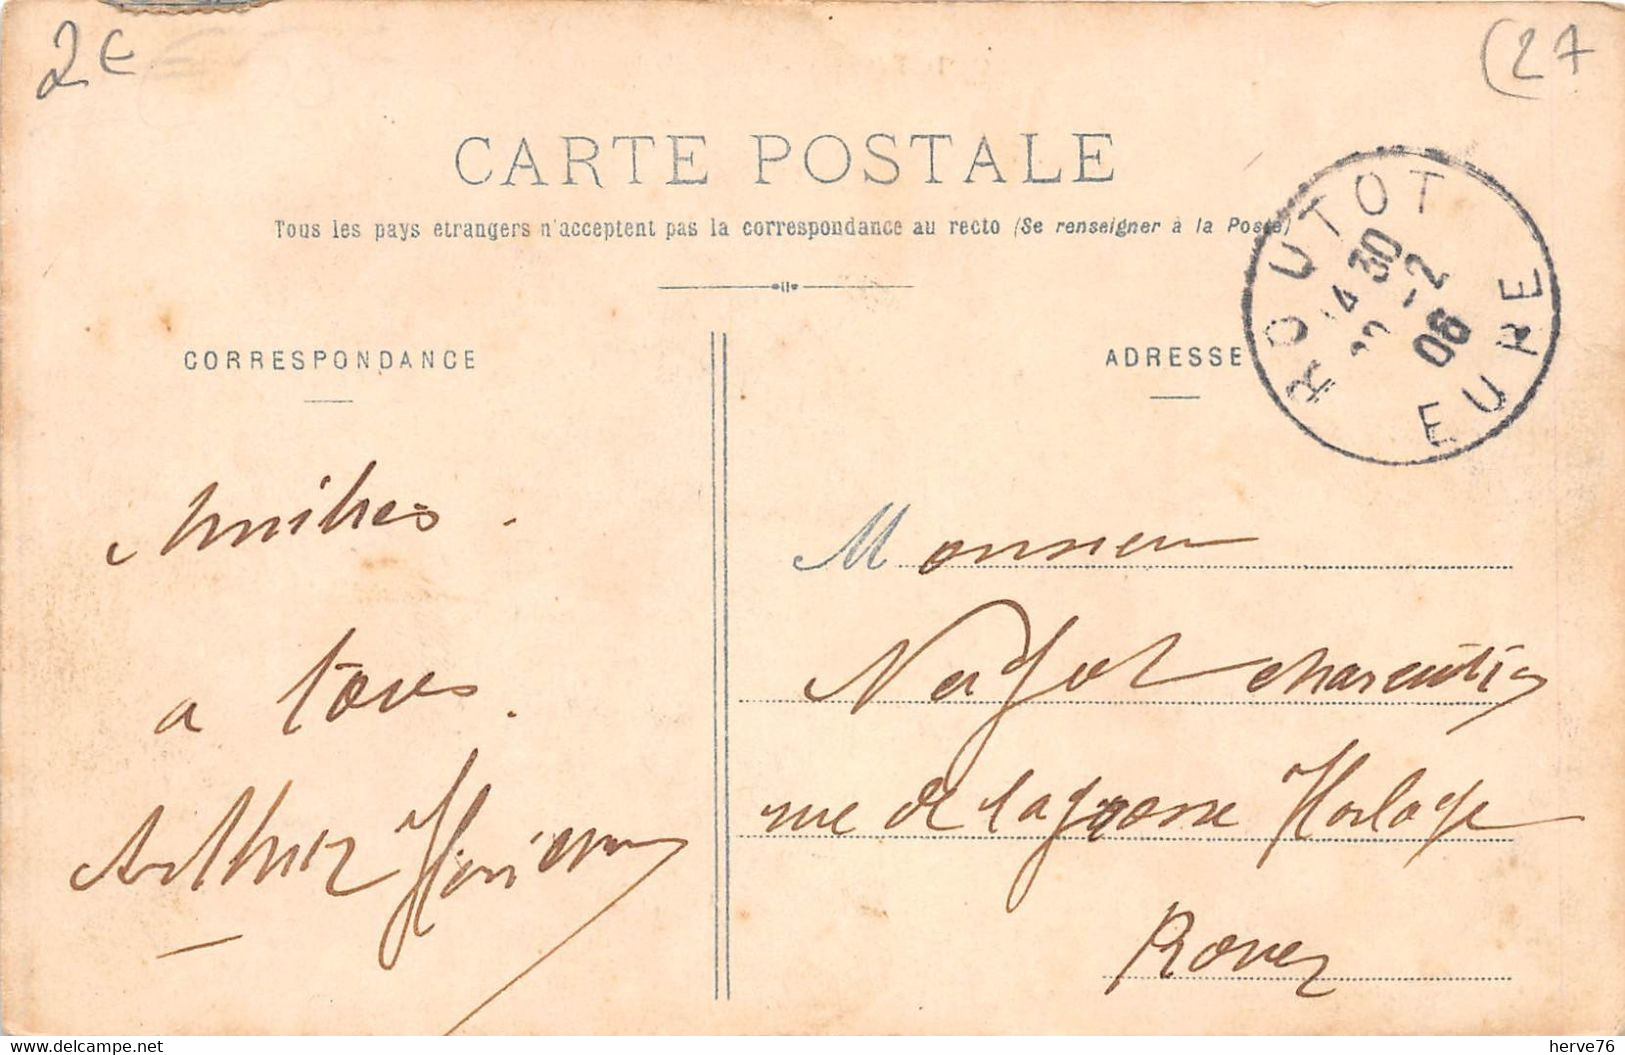 2€
(27
CARTE POSTALE
Tous les pays etrangers n'acceptent pas la correspondance au recto (Se renseigner à la Poste)
ROUTOT
14 30
22 -2
06
EURE
CORRESPONDANCE
ADRESSE
Amities
a tous
Arthur
Monsieur
charcutier
rue de la grosse Horloge
Rouen
www.delcampe.net
herve76